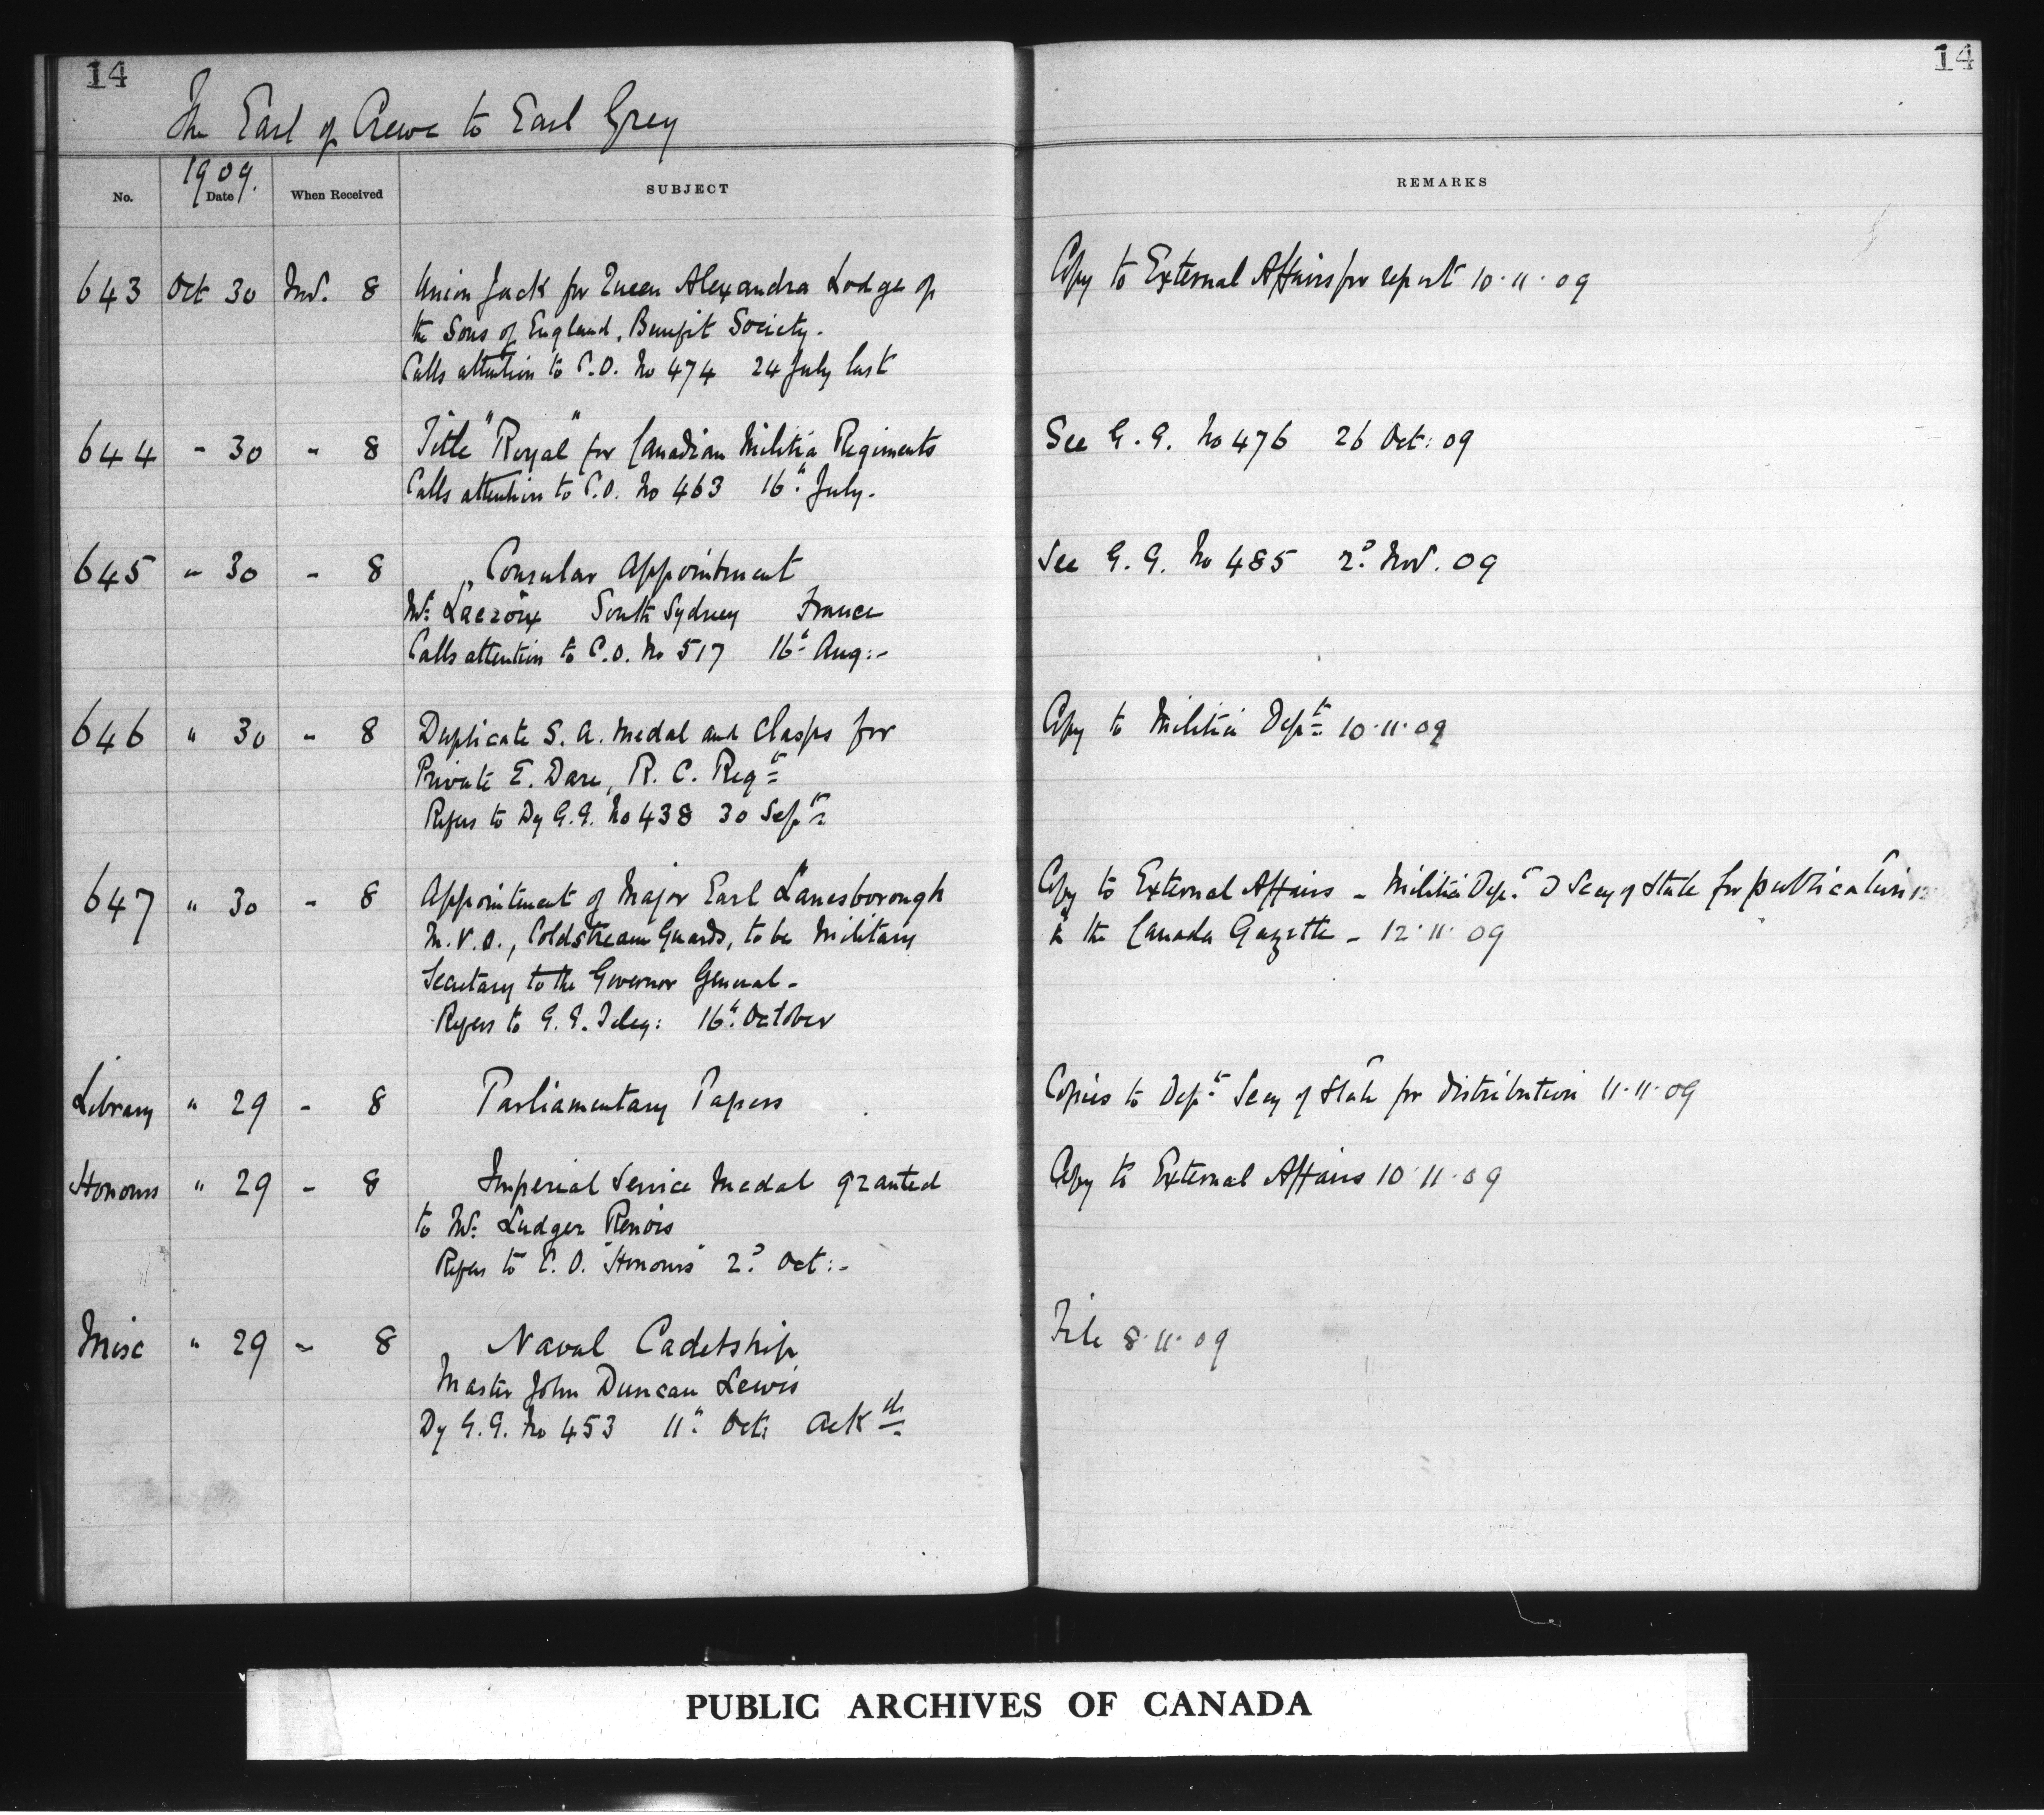 14
14
The Earl of Crewe to Earl Grey
1909.
No. Date When Received SUBJECT REMARKS
643 Oct 30 Nov. 8 Union Jack for Queen Alexandra Lodge of Copy to External Affairs for report 10·11·09
the Sons of England, Benefit Society.
Calls attention to C.O. No 474 24 July last
644 " 30 " 8 Title "Royal" for Canadian Militia Regiments See G.G. No 476 26 Oct: 09
Calls attention to C.O. No 463 16th July.
645 " 30 " 8 Consular Appointment See G.G. No 485 2d Nov. 09
Mr. Lacroix South Sydney France
Calls attention to C.O. No 517 16th Aug:-
646 " 30 " 8 Duplicate S.A. Medal and Clasps for Copy to Militia Dept 10·11·09
Private E. Dare, R.C. Regt
Refers to Dy G.G. No 438 30 Sept.
647 " 30 " 8 Appointment of Major Earl Lanesborough Copy to External Affairs - Militia Dept & Secy of State for publication
M.V.O., Coldstream Guards, to be Military in the Canada Gazette - 12·11·09
Secretary to the Governor General.
Refers to G.G. Teleg: 16th October
Library " 29 " 8 Parliamentary Papers Copies to Dept Secy of State for distribution 11·11·09
Honours " 29 " 8 Imperial Service Medal granted Copy to External Affairs 10·11·09
to Mr. Ludger Renois
Refers to C.O. "Honours" 2d Oct:-
Misc " 29 " 8 Naval Cadetship File 8·11·09
Master John Duncan Lewis
Dy G.G. No 453 11th Oct: Ackd
PUBLIC ARCHIVES OF CANADA